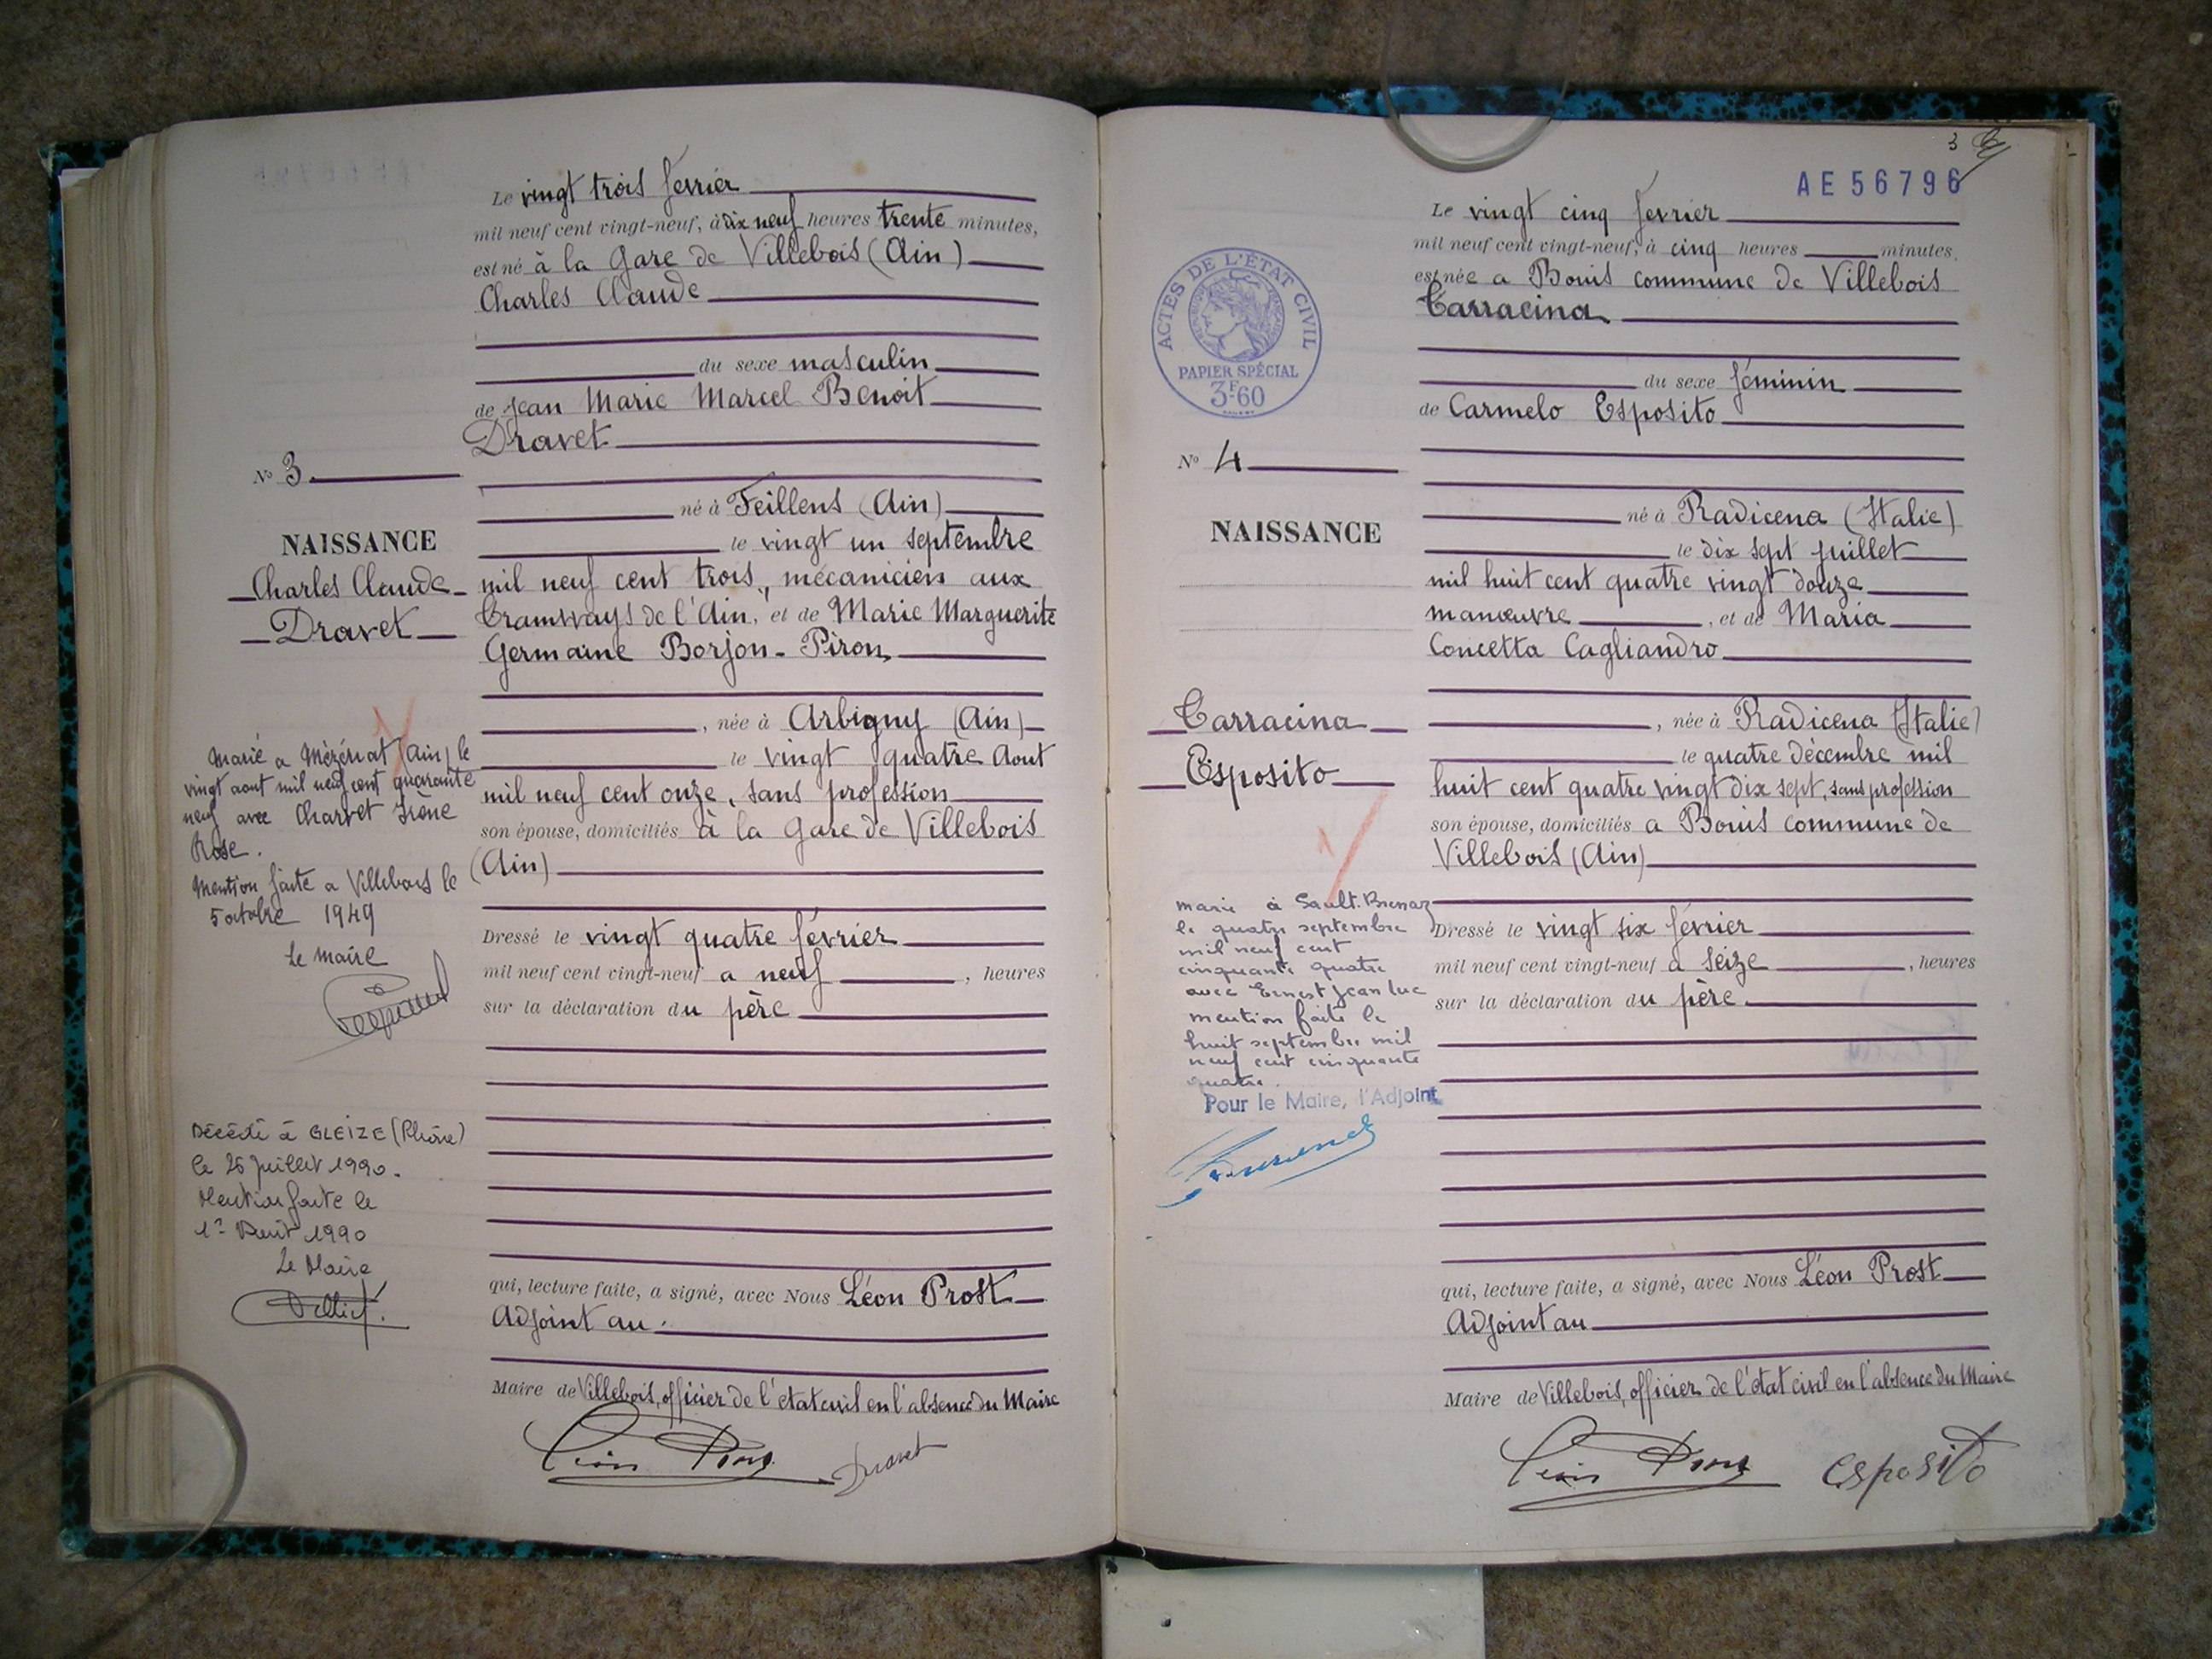 Le vingt trois février
mil neuf cent vingt-neuf, à dix neuf heures trente minutes,
est né à la Gare de Villebois (Ain)
Charles Claude
du sexe masculin
de Jean Marie Marcel Benoit
Dravet
né à Feillens (Ain)
le vingt un septembre
mil neuf cent trois, mécanicien aux
Tramways de l'Ain, et de Marie Marguerite
Germaine Borjon-Piron,
, née à Arbigny (Ain)
le vingt quatre Aout
mil neuf cent onze, sans profession
son épouse, domiciliés à la Gare de Villebois
(Ain)
Dressé le vingt quatre février
mil neuf cent vingt-neuf a neuf, heures
sur la déclaration du père
qui, lecture faite, a signé, avec Nous Léon Prost
Adjoint au
Maire de Villebois, officier de l'état civil en l'absence du Maire
Léon Prost Dravet
No 3
NAISSANCE
Charles Claude
Dravet
Marié a Mézériat (Ain) le
vingt aout mil neuf cent quarante
neuf avec Charvet Irène
Rose.
Mention faite a Villebois le
5 octobre 1949
Le maire
Décédé à GLEIZE (Rhône)
le 26 juillet 1990.
Mention faite le
1er Août 1990
Le Maire
3
AE56796
Le vingt cinq février
mil neuf cent vingt-neuf, à cinq heures minutes,
est née a Bouis commune de Villebois
Tarracina
du sexe féminin
de Carmelo Esposito
né à Radicena (Italie)
le dix sept juillet
mil huit cent quatre vingt douze
manœuvre, et de Maria
Concetta Cagliandro
, née à Radicena (Italie)
le quatre décembre mil
huit cent quatre vingt dix sept, sans profession
son épouse, domiciliés a Bouis commune de
Villebois (Ain)
Dressé le vingt six février
mil neuf cent vingt-neuf à seize, heures
sur la déclaration du père
qui, lecture faite, a signé, avec Nous Léon Prost
Adjoint au
Maire de Villebois, officier de l'état civil en l'absence du Maire
Léon Prost esposito
ACTES DE L'ÉTAT CIVIL
PAPIER SPÉCIAL
3F60
No 4
NAISSANCE
Tarracina
Esposito
marié à Sault-Brenaz
le quatre septembre
mil neuf cent
cinquante quatre
avec Ernest Jean Luc
mention faite le
huit septembre mil
neuf cent cinquante
quatre.
Pour le Maire, l'Adjoint